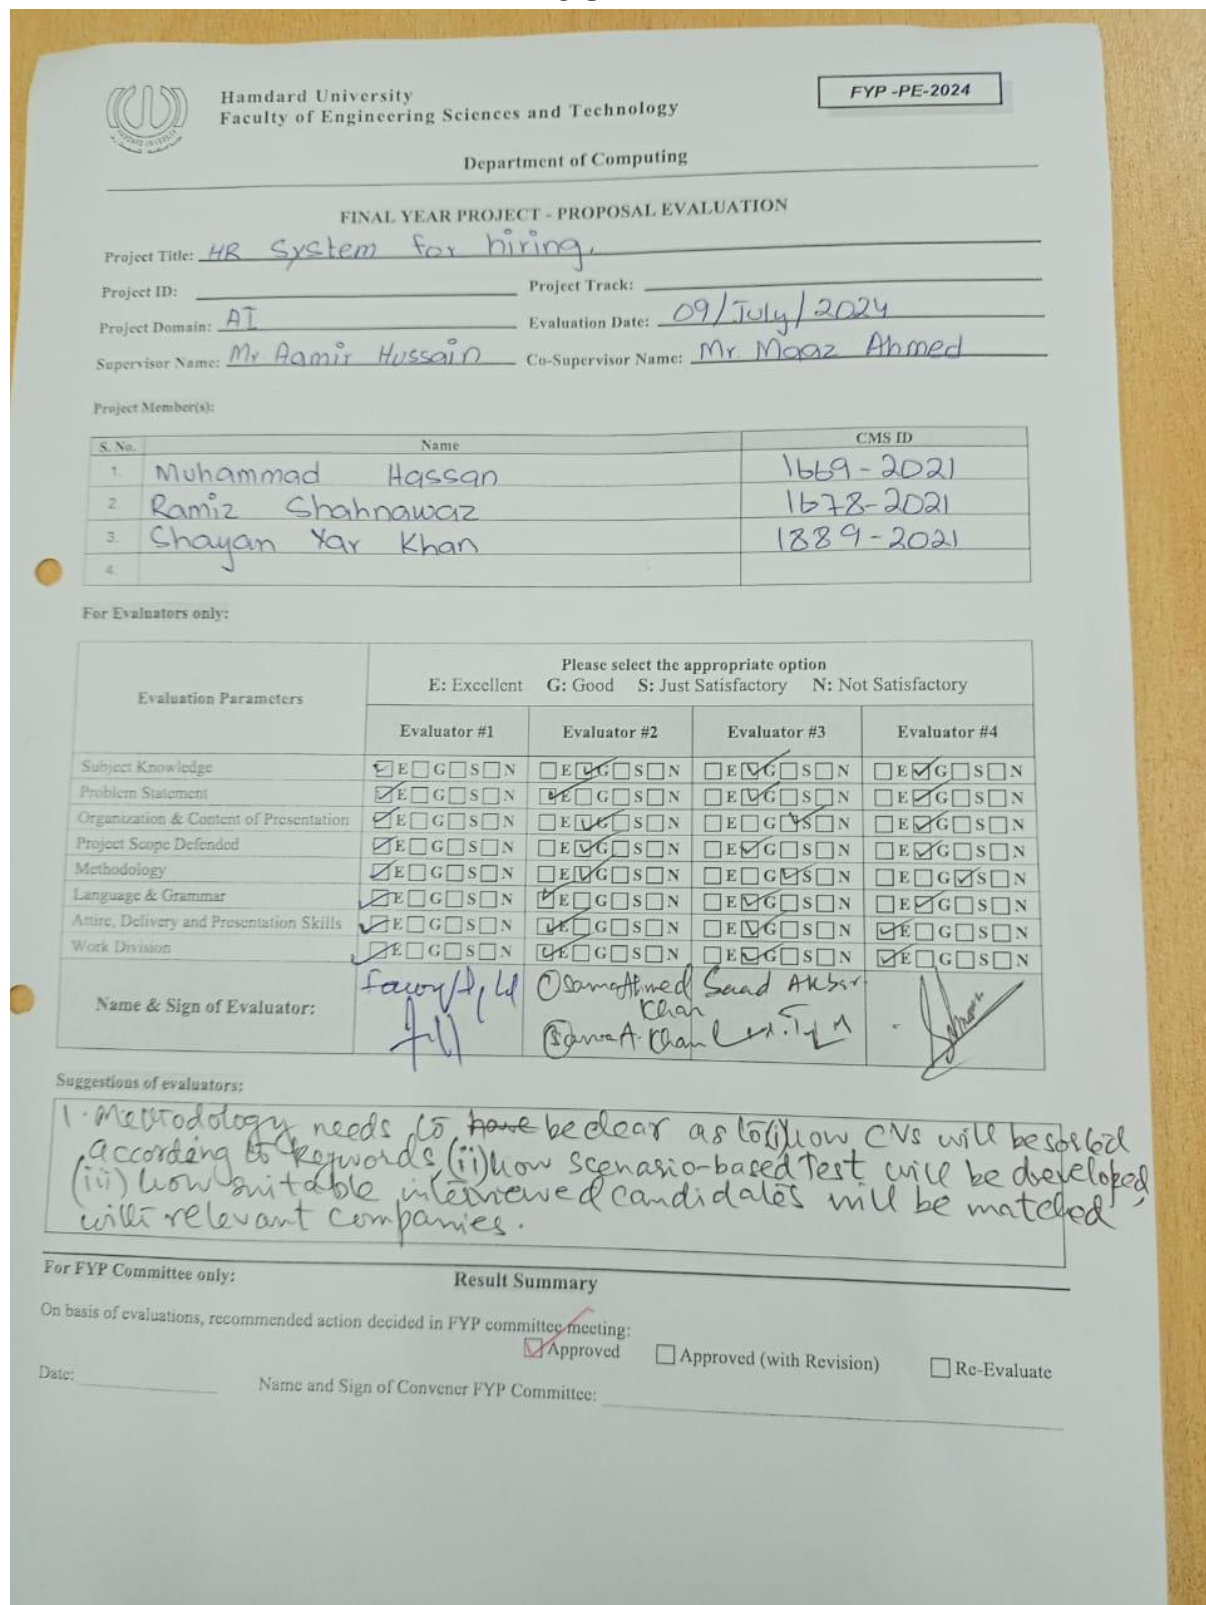 Hamdard University
Faculty of Engineering Sciences and Technology
FYP -PE-2024
HAMDARD UNIVERSITY
Department of Computing
FINAL YEAR PROJECT - PROPOSAL EVALUATION
Project Title: HR System for hiring.
Project ID: Project Track:
Project Domain: AI Evaluation Date: 09/July/2024
Supervisor Name: Mr Aamir Hussain Co-Supervisor Name: Mr. Maaz Ahmed
Project Member(s):
S. No. Name CMS ID
1. Muhammad Hassan 1669-2021
2. Ramiz Shahnawaz 1678-2021
3. Shayan Yar Khan 1889-2021
4.
For Evaluators only:
Evaluation Parameters
Please select the appropriate option
E: Excellent G: Good S: Just Satisfactory N: Not Satisfactory
Evaluator #1 Evaluator #2 Evaluator #3 Evaluator #4
Subject Knowledge E G S N E G S N E G S N E G S N
Problem Statement E G S N E G S N E G S N E G S N
Organization & Content of Presentation E G S N E G S N E G S N E G S N
Project Scope Defended E G S N E G S N E G S N E G S N
Methodology E G S N E G S N E G S N E G S N
Language & Grammar E G S N E G S N E G S N E G S N
Attire, Delivery and Presentation Skills E G S N E G S N E G S N E G S N
Work Division E G S N E G S N E G S N E G S N
Name & Sign of Evaluator: Osama Ahmed Khan Saad Akbar
Osama A. Khan
Suggestions of evaluators:
1. Methodology needs to have be clear as to (i) how CVs will be sorted
according to keywords, (ii) how scenario-based Test will be developed,
(iii) how suitable interviewed candidates will be matched
with relevant companies.
For FYP Committee only:
Result Summary
On basis of evaluations, recommended action decided in FYP committee meeting:
Approved Approved (with Revision) Re-Evaluate
Date: Name and Sign of Convener FYP Committee: